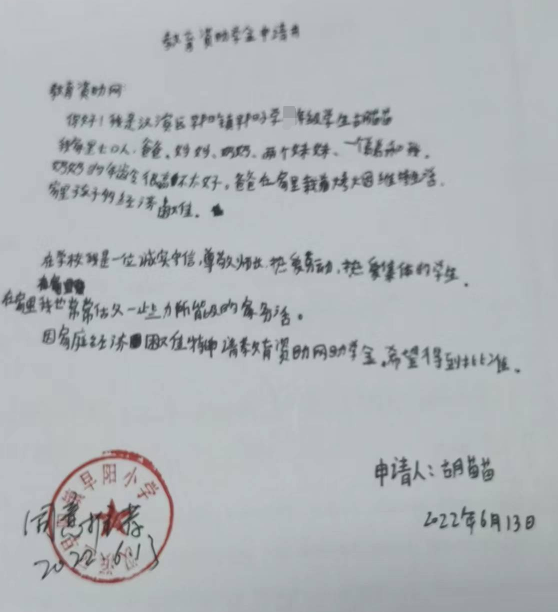 教育资助学金申请书
教育资助网
你好！我是汉滨区早阳镇早阳小学年级学生胡苗苗
我家里七口人，爸爸，妈妈，奶奶，两个妹妹，一个和我，
奶奶的年龄很高，不太好，爸爸在家里栽烤火田维持生活，
家里孩子的经济困难。
在学校我是一位诚实守信，尊敬师长，热爱劳动，热爱集体的学生。
在家里我也常常做一些力所能及的家务活。
因家庭经济困难特申请教育资助网助学金，希望得到批准。
申请人：胡苗苗
2022年6月13日
同意推荐
2022.6.13
镇早阳小学